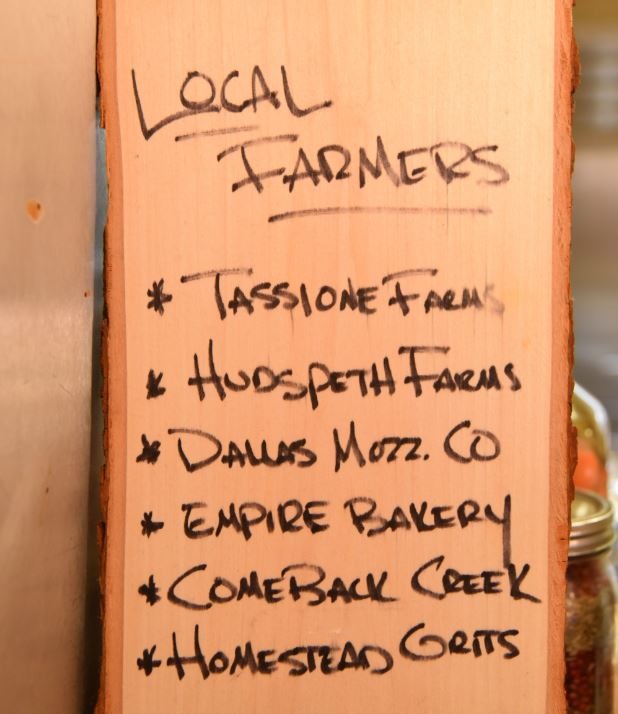 LOCAL
FARMERS
* TASSIONE FARMS
* HUDSPETH FARMS
* DALLAS MOZZ. CO
* EMPIRE BAKERY
* COMEBACK CREEK
* HOMESTEAD GRITS